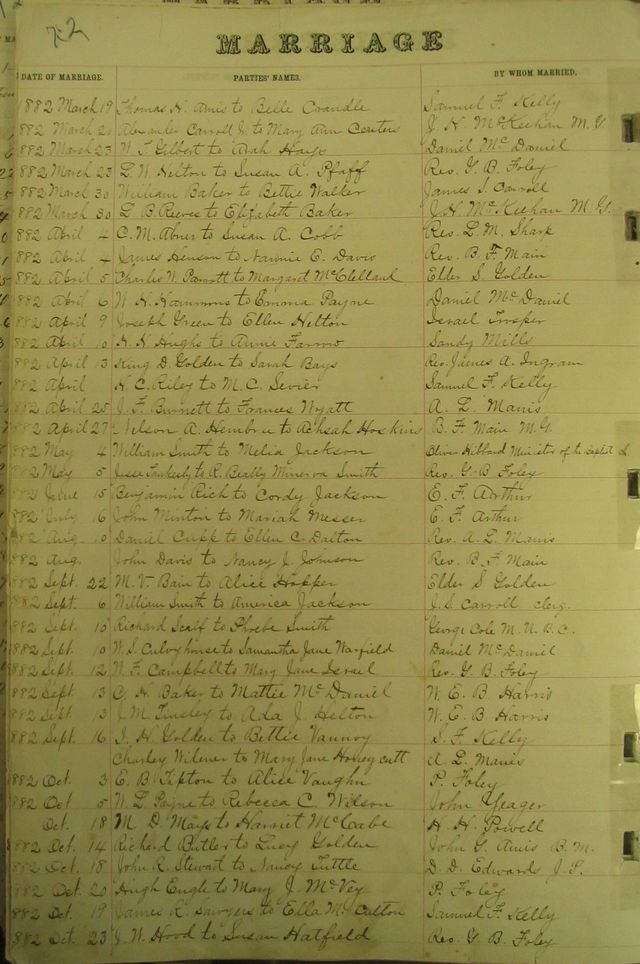 72
MARRIAGE
DATE OF MARRIAGE. PARTIES' NAMES. BY WHOM MARRIED.
1882 March 19 Thomas H. Amis to Belle Crandle Samuel F. Kelly
1882 March 20 Alexander Carroll Jr to Mary Ann Centers J H McKeehan M. G.
1882 March 23 W. T. Gilbert to Arah Hays Daniel McDaniel
1882 March 23 L. W. Hilton to Susan A. Pfaff Rev. G. B. Foley
1882 March 30 William Baker to Bettie Walker James S. Carroll
1882 March 30 L B Reeves to Elizabeth Baker J.H. McKeehan M. G.
1882 April 4 C. M. Abner to Susan A. Cobb Rev. L. M. Sharp
1882 April 4 James Henson to Nannie E. Davis Rev. B. F. Main
1882 April 5 Charles W. Parrott to Margaret McClelland Elder S. Golden
1882 April 6 W. H. Hammons to Emma Payne Daniel McDaniel
1882 April 9 Joseph Green to Ellen Helton Israel Trosper
1882 April 10 H. H. Hughs to Annie Farrow Sandy Mills
1882 April 13 King D. Golden to Sarah Bays Rev. James A. Ingram
1882 April H. C. Riley to M. C. Sevier Samuel F. Kelly
1882 April 25 J. F. Burnett to Frances Wyatt A. L. Manis
1882 April 27 Nelson A. Hembree to Achsah Hoskins B. F. Main M.G.
1882 May 4 William Smith to Melia Jackson Oliver Hibbard Minister of the Baptist Ch
1882 May 5 Jesse to R. Minerva Smith Rev. G B Foley
1882 June 15 Benjamin Rich to Cordy Jackson E. F. Arthur
1882 July 16 John Minton to Mariah Messer E. F. Arthur
1882 Aug. 10 Daniel Cupp to Ellen C. Dalton Rev. A. L. Manis
1882 Aug. John Davis to Nancy J. Johnson Rev. B. F. Main
1882 Sept. 22 M. V. Bain to Alice Hopper Elder S Golden
1882 Sept. 6 William Smith to America Jackson J. S. Carroll Clerg.
1882 Sept. 10 Richard Scalf to Phoebe Smith George Cole M. U. B. C.
1882 Sept. 10 W. S. Culvyhouse to Samantha Jane Warfield Daniel McDaniel
1882 Sept. 12 W. F. Campbell to Mary Jane Israel Rev. G. B. Foley
1882 Sept 13 C. H. Baker to Mattie McDaniel W. E. B Harris
1882 Sept. 13 J. M. Tinsley to Ada J. Helton W. E. B Harris
1882 Sept. 16 J. H Golden to Bettie Vannoy S. F. Kelly
Charley Widener to Mary Jane Honeycutt A. L. Manis
1882 Oct. 3 E. B. Tipton to Alice Vaughn P. Foley
1882 Oct 5 W. L Payne to Rebecca C. Wilson John Yeager
Oct. 18 M. D. Mays to Harriet McCabe H. H. Powell
1882 Oct. 14 Richard Butler to Lucy Golden John G. Amis B. M.
1882 Oct. 18 John R. Stewart to Nancy Tuttle D. D. Edwards J. P.
1882 Oct. 20 Hugh Eugle to Mary J. McVey P. Foley
1882 Oct. 19 James R. Sawyers to Ella Samuel F. Kelly
1882 Oct. 23 J. W. Hood to Susan Hatfield Rev. G. B. Foley